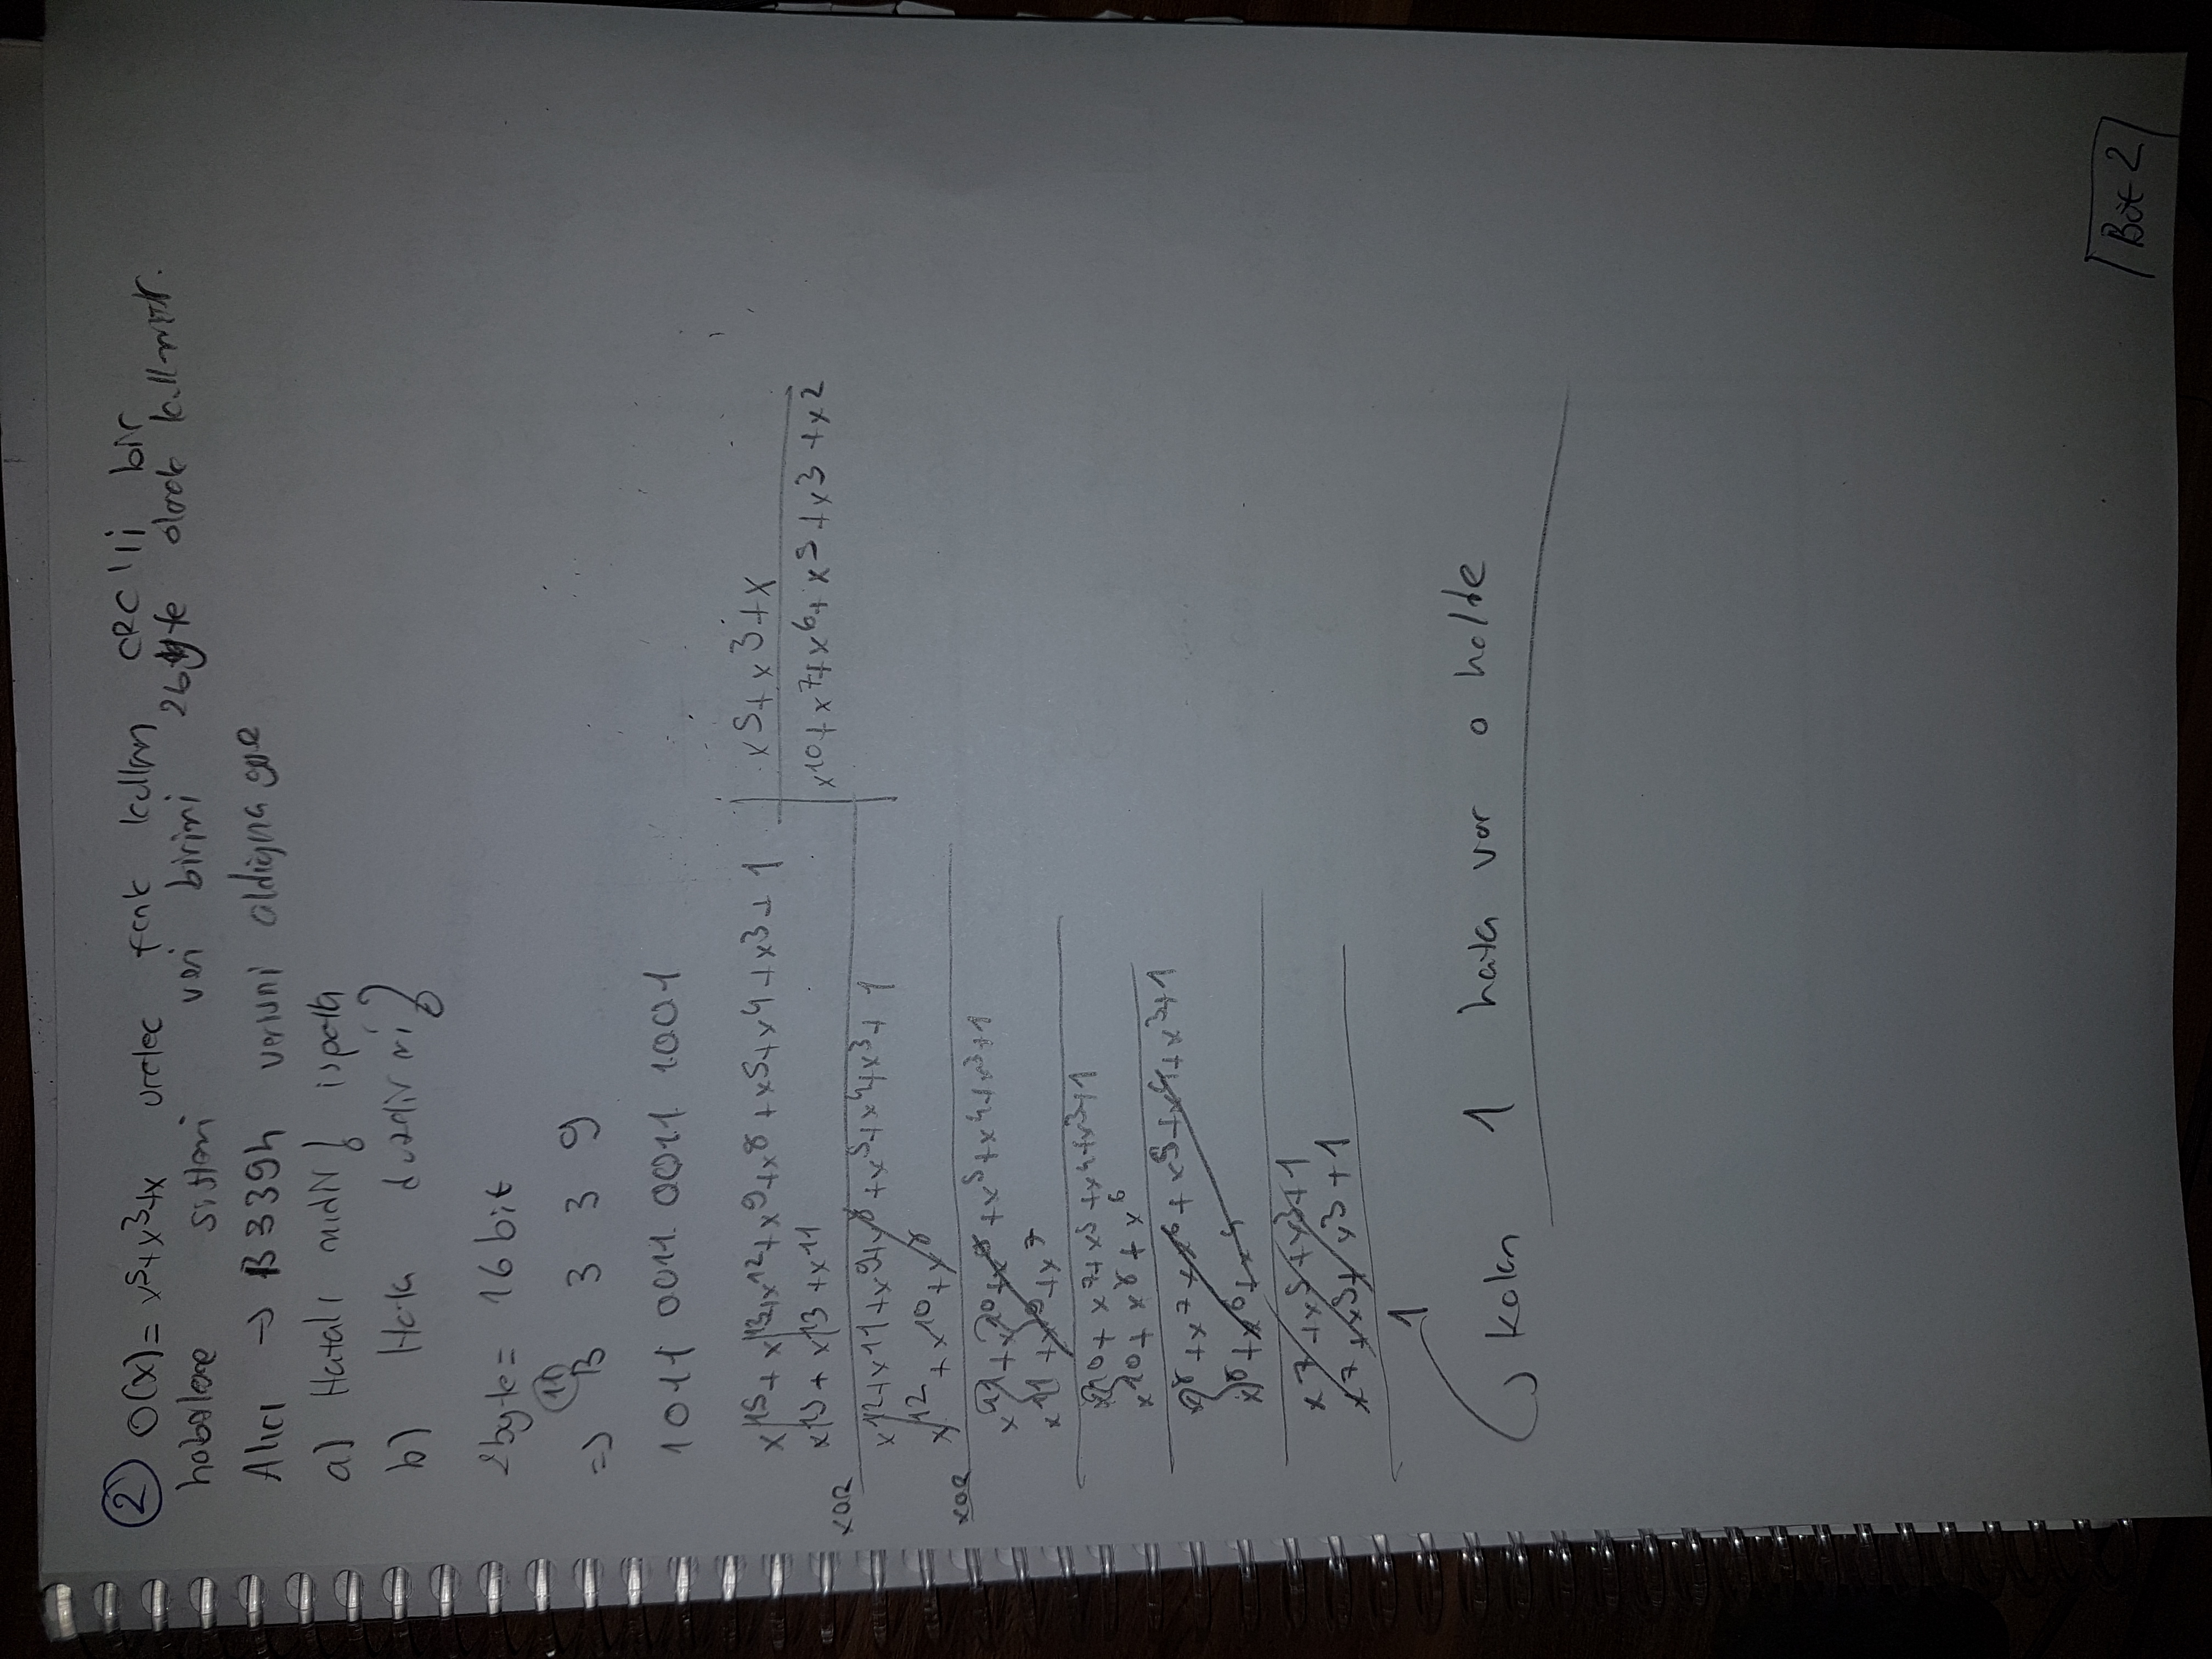 2 O(x)= x⁵+x³+x fonk CRC'li bir
sistemi veri birimi 2byte olarak
Alıcı → B339h verisini aldığına göre
a) Hatalı mıdır?
b) Hata
2byte= 16 bit
11
=> B 3 3 9
1011 0011 0011 1001
x¹⁵+x¹³+x¹²+x⁹+x⁸+x⁵+x⁴+x³+1 x⁵+x³+x
x¹⁵+x¹³+x¹¹ x¹⁰+x⁷+x⁶+x⁵+x³+x²
XOR
x¹²+x¹¹+x⁹+x⁸+x⁵+x⁴+x³+1
x¹²+x¹⁰+x⁸
XOR
x¹¹+x¹⁰+x⁹+x⁵+x⁴+x³+1
x¹¹+x⁹+x⁷
x¹⁰+x⁷+x⁵+x⁴+x³+1
x¹⁰+x⁸+x⁶
x⁸+x⁷+x⁶+x⁵+x⁴+x³+1
x⁸+x⁶+x⁴
x⁷+x⁵+x³+1
x⁷+x⁵+x³+1
1
kalan 1 hata var o halde